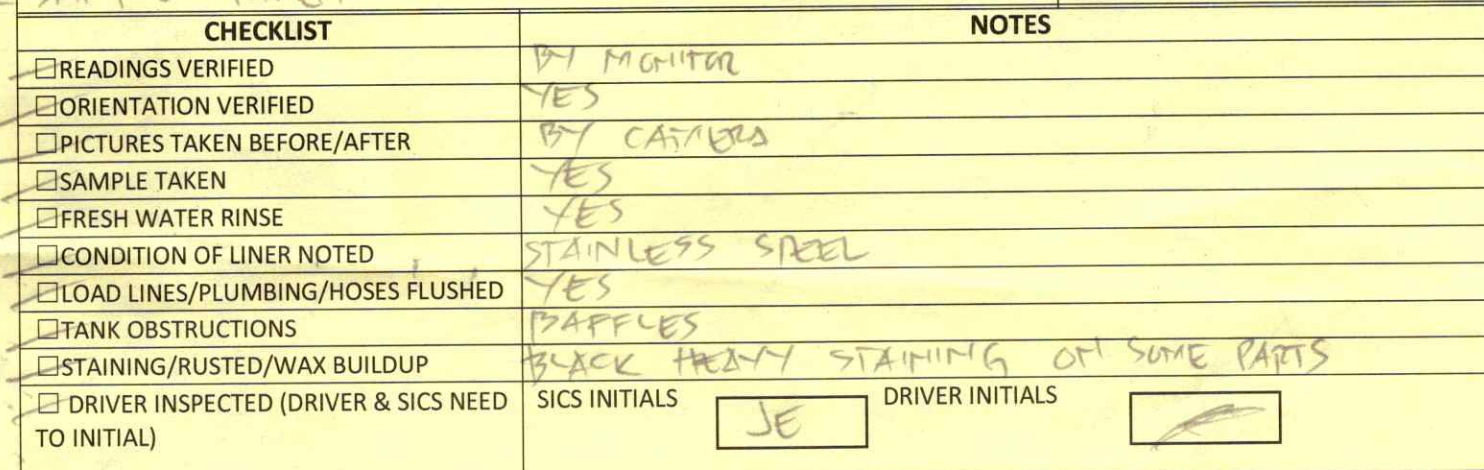 CHECKLIST NOTES
☐READINGS VERIFIED BY MONITOR
☐ORIENTATION VERIFIED YES
☐PICTURES TAKEN BEFORE/AFTER BY CAMERA
☐SAMPLE TAKEN YES
☐FRESH WATER RINSE YES
☐CONDITION OF LINER NOTED STAINLESS STEEL
☐LOAD LINES/PLUMBING/HOSES FLUSHED YES
☐TANK OBSTRUCTIONS BAFFLES
☐STAINING/RUSTED/WAX BUILDUP BLACK HEAVY STAINING ON SOME PARTS
☐ DRIVER INSPECTED (DRIVER & SICS NEED SICS INITIALS JE DRIVER INITIALS
TO INITIAL)